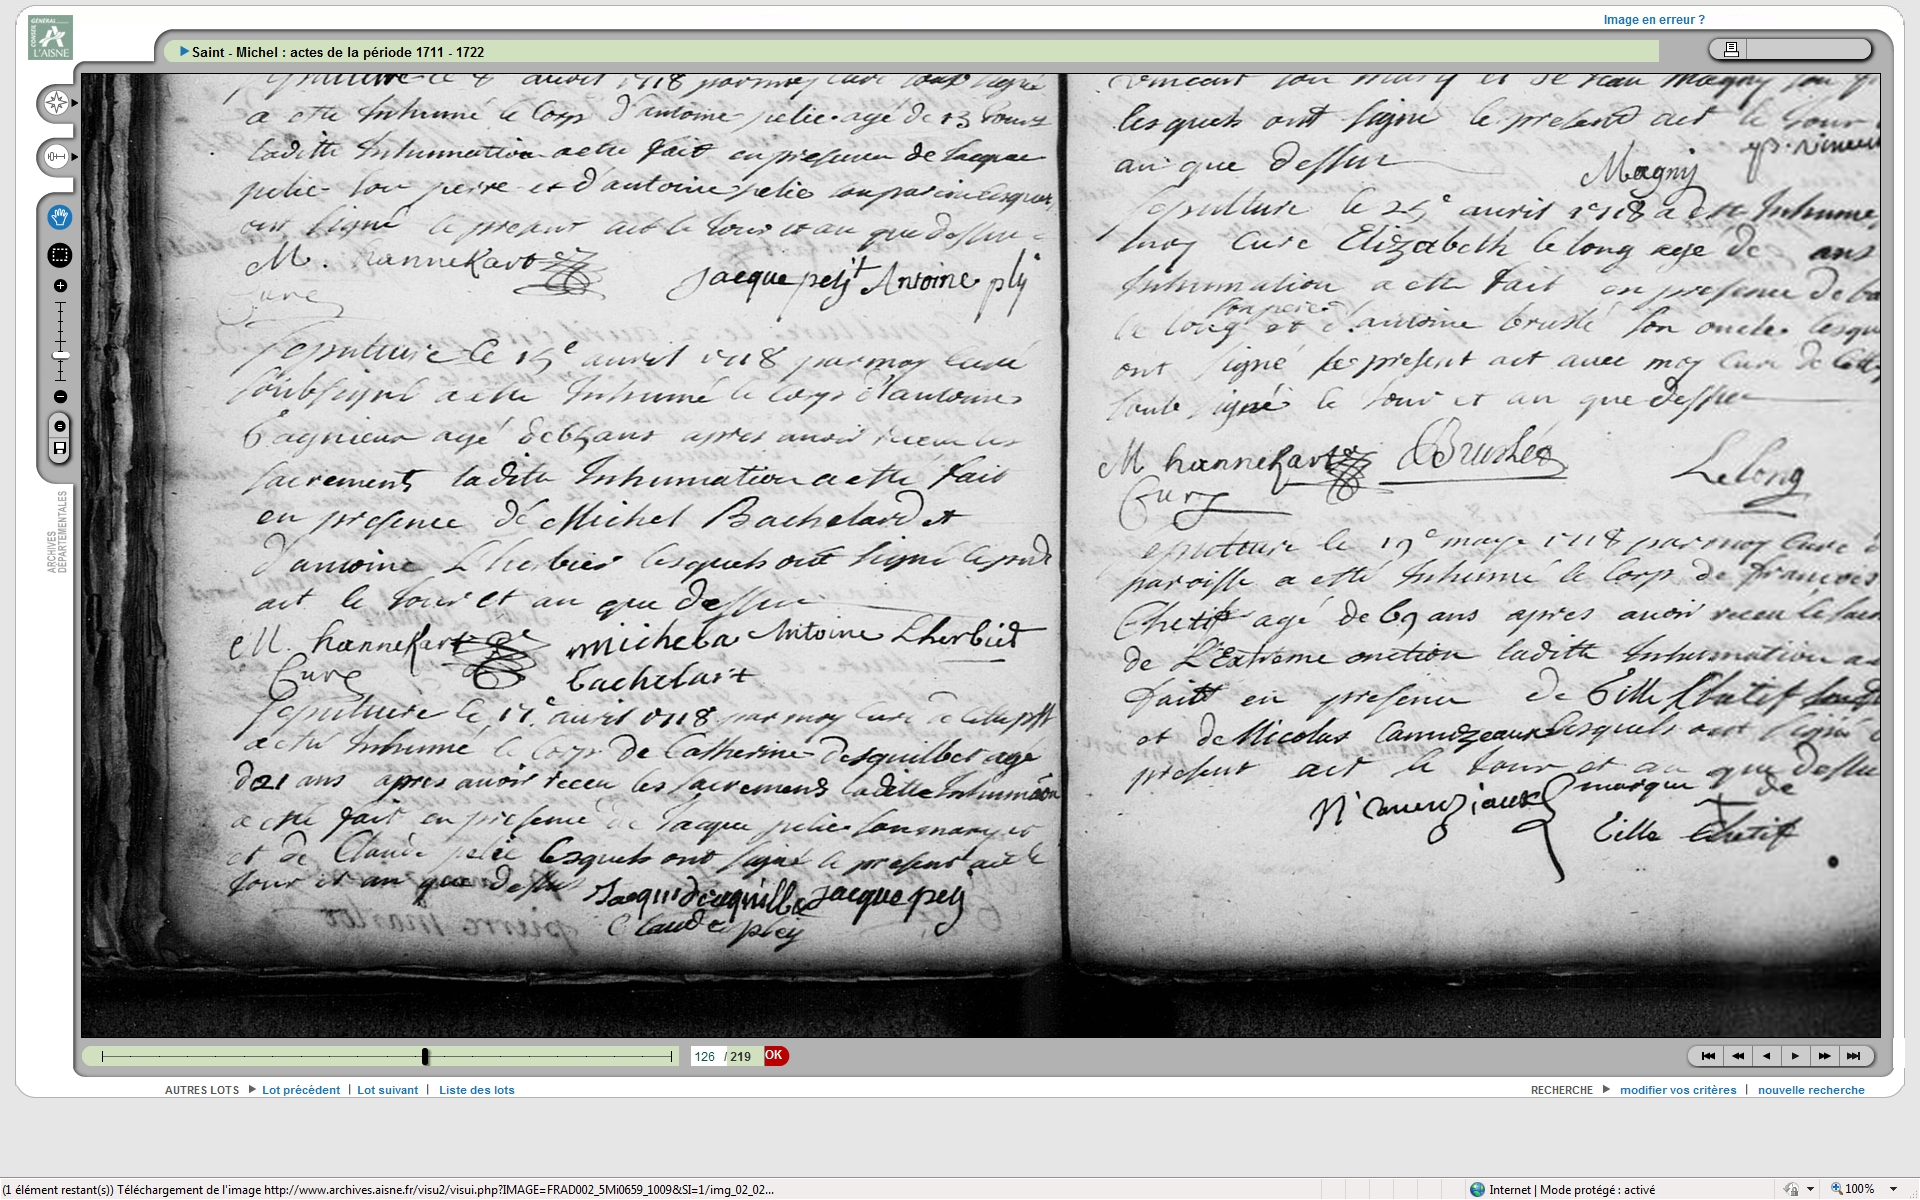 Image en erreur ?
CONSEIL GÉNÉRAL
L'AISNE
Saint - Michel : actes de la période 1711 - 1722
ARCHIVES
DÉPARTEMENTALES
sepulture le 8 auril 1718 par moy Curé soub signé
a ette Inhumé le Corps d'antoine pelie agé de 13 Jours
laditte Inhumation a ette fait en presence de Jacque
pelie son peire et d'antoine pelie son parein lesquels
ont signé le present act le Jour et an que dessu
M. hannekart
Cure
Jacque peli Antoine pli
sepulture le 15e auril 1718 par moy Curé
soubsigné a ette Inhumé le Corps d'antoine
agé de 65 ans apres auoir receu les
sacrements laditte Inhumation a ette fait
en presence de Michel Bachelard et
d'antoine Lherbier lesquels ont signé le
act le Jour et an que dessu
M. hannekart micheba Antoine Lherbiet
Cure bachelart
sepulture le 17e auril 1718 par moy Curé de Cette
a ette Inhumé le Corps de Catherine desquilbet agé
de 21 ans apres auoir receu les sacrements laditte Inhumaon
a ette fait en presence de Jacque pelie son mary et
et de Claude pelie lesquels ont signé le present act le
Jour et an que dessus
Jacque peli
Claude pley
vincent son mary et de Jean Magny son
lesquels ont signé le present act le Jour
an que dessu
Magny
sepulture le 25e auril 1718 a ette Inhumé
moy Curé Elizabeth le long agé de ans
Inhumation a ette fait en presence de
son peire
le long et d'antoine bruslé son oncle lesqu
ont signé le present act auec moy Curé de Cette
soub signé le Jour et an que dessu
M hannekart Bruslé Lelong
Cure
sepulture le 19e maye 1718 par moy Curé
paroisse a etté Inhumé le Corps de francois
Chetif agé de 69 ans apres auoir receu le sacr
de L'Extreme onction laditte Inhumation a
faitt en presence de Gille Chatif
et de Nicolas Cannozeaux lesquels ont signé
present act le Jour et an que dessu
marque de
Gille Chetif
126 / 219 OK
AUTRES LOTS Lot précédent | Lot suivant | Liste des lots
RECHERCHE modifier vos critères | nouvelle recherche
(1 élément restant(s)) Téléchargement de l'image http://www.archives.aisne.fr/visu2/visui.php?IMAGE=FRAD002_5Mi0659_1009&SI=1/img_02_02...
Internet | Mode protégé : activé
100%